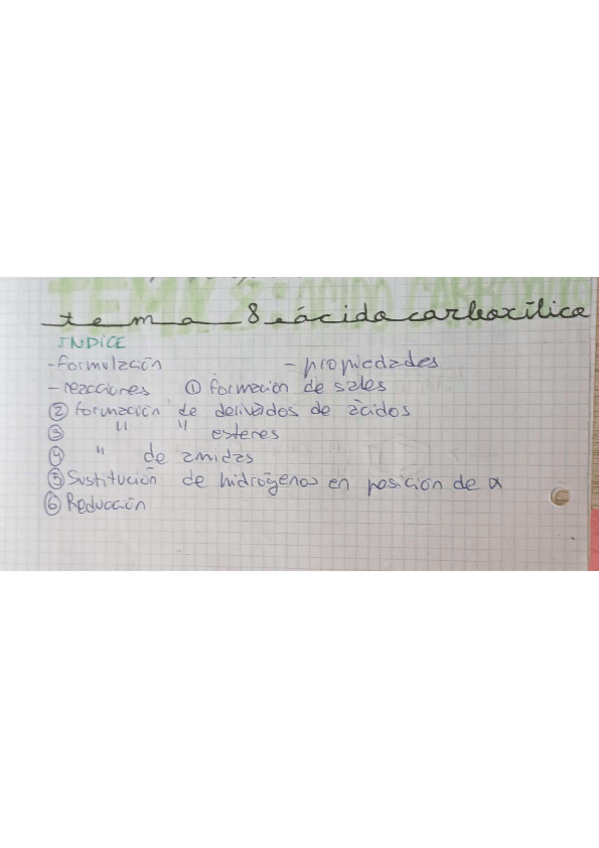 tema 8. ácido carboxílico
INDICE
- formulación - propiedades
- reacciones ① formación de sales
② formación de derivados de ácidos
③ " " esteres
④ " de amidas
⑤ Sustitución de hidrógenos en posición de α
⑥ Reducción